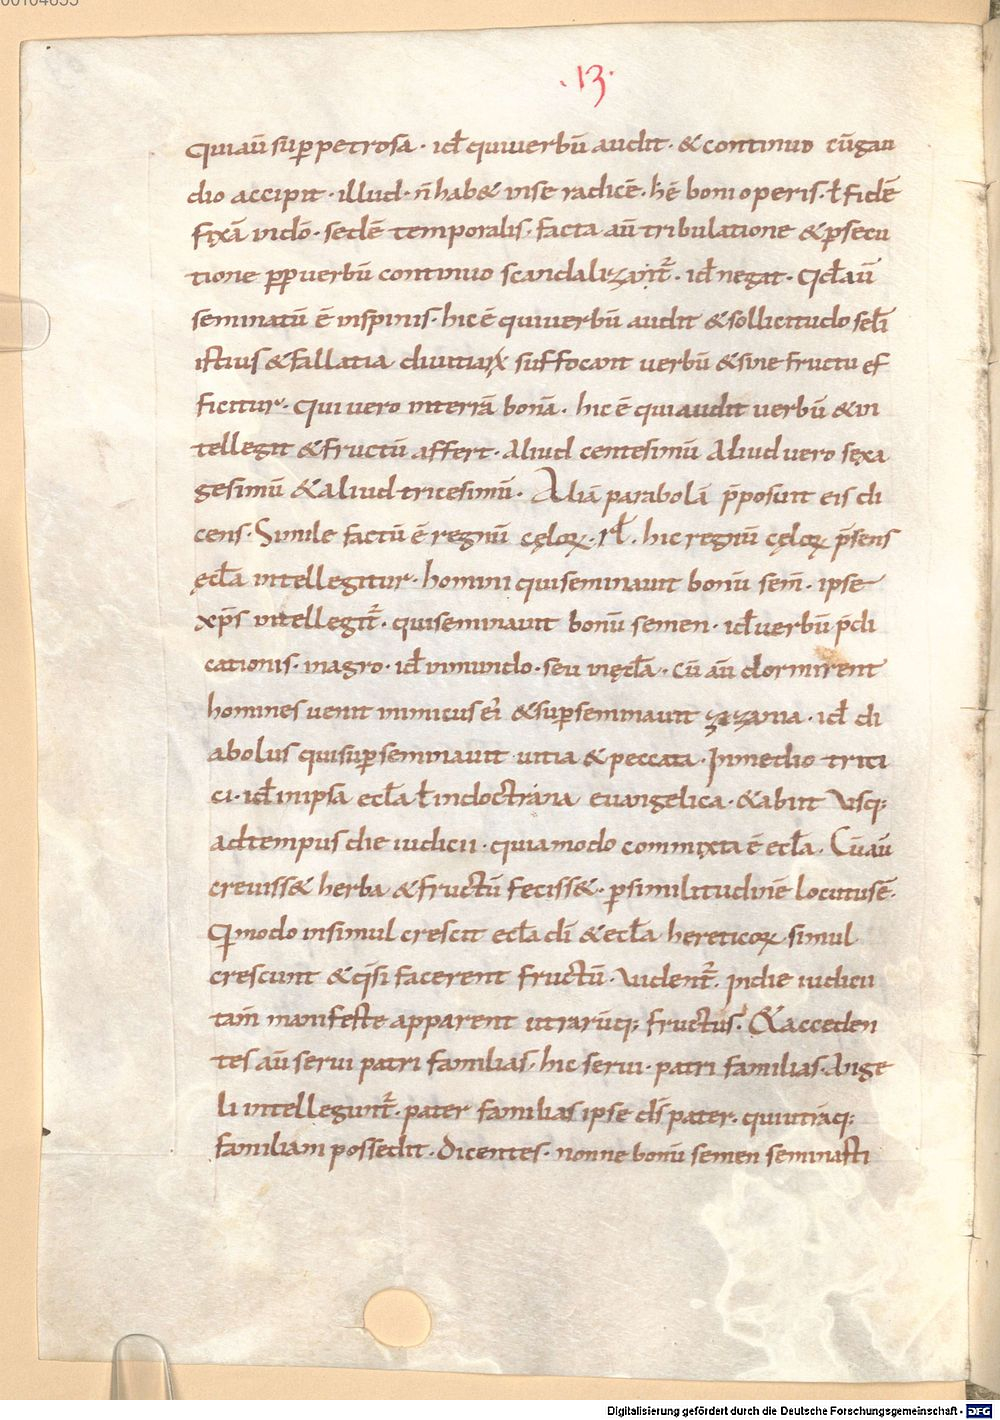 00104633
.13.
Quiaū sup̄ petrosa · idē quiuerbū audit · & continuo cūgau
dio accipit · illud · n̄ hab& inse radicē · hē boni operis · ł fidē
fixā indō · sedē temporalis · facta aū tribulatione & p̄secu
tione pp̄ uerbū continuo scandalizant̄ · idē negat · Qđ aū
seminatū ē inspinis · hic ē quiuerbū audit & sollicitudo sc̄li
istius & fallatia diuitiaꝝ suffocant uerbū & sine fructu ef
ficitur · Qui uero interrā bonā · hic ē qui audit uerbū & in
tellegit & fructū affert · Aliud centesimū Aliud uero sexa
gesimū & aliud tricesimū · Aliā parabolā p̄posuit eis di
cens · Simile factū ē regnū cęloꝝ · rł · hic regnū cęloꝝ p̄sens
ęcłā intellegitur · homini qui seminauit bonū sem̄ · ipse
xp̄s intellegit̄ · qui seminauit bonū semen · idē uerbū p̄di
cationis · inagro · idē inmundo · seu inęcłā · cū aū dormirent
homines uenit inimicus ei' & sup̄seminauit zizania · idē di
abolus qui sup̄seminauit uitia & peccata · Inmedio triti
ci · idē inipsa ecłā ł indoctrina euangelica · & abiit Usq;
adtempus die iudicii · quia modo commixta ē ecłā · Cū aū
creuiss& herba & fructū feciss& · p̄ similitudinē locutus ē ·
Qm̄odo insimul crescit ecłā dī & ecłā hereticoꝝ simul
crescunt & q̄si facerent fructū · uident̄ · Indie iudicii
tam̄ manifeste apparent utrarūq; fructus · & acceden
tes aū serui patri familias · hic serui · patri familias · Ange
li intellegunt̄ · pater familias ipse ds̄ pater · qui utrāq;
familiam possedit · Dicentes · nonne bonū semen seminasti
Digitalisierung gefördert durch die Deutsche Forschungsgemeinschaft - DFG